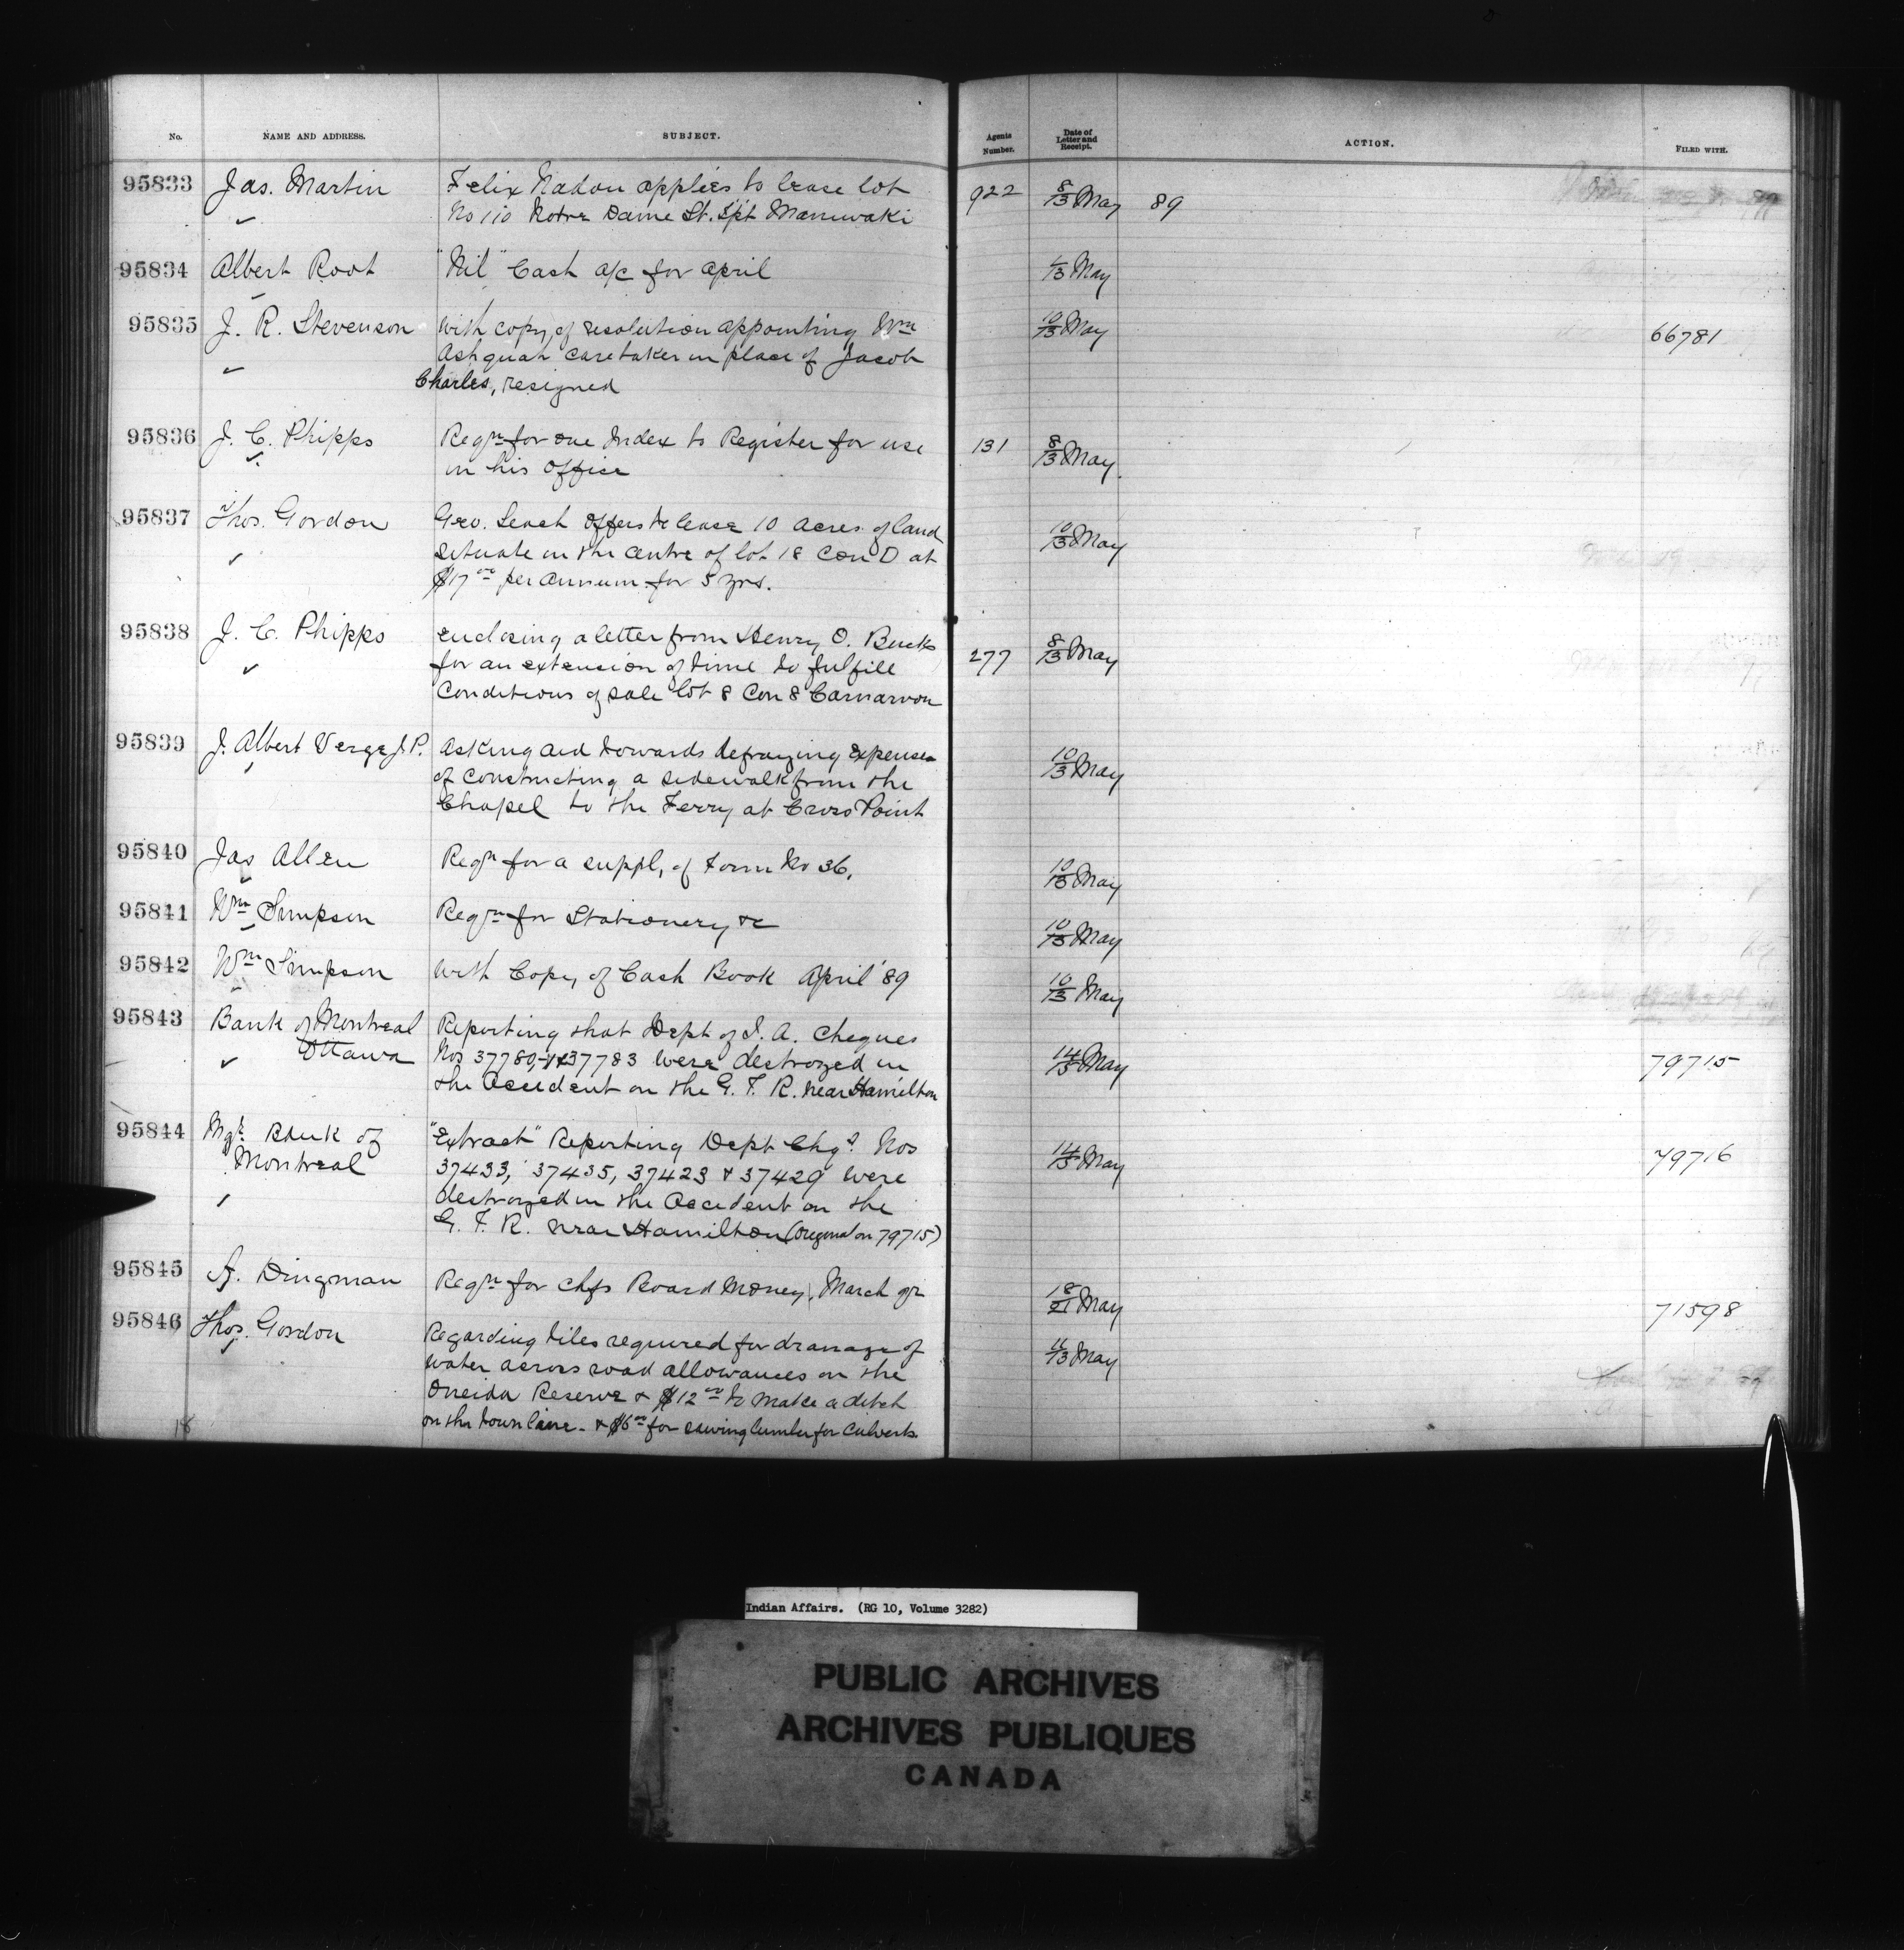 No. NAME AND ADDRESS. SUBJECT. Agents Number. Date of Letter and Receipt. ACTION. FILED WITH.
95833 Jas. Martin Felix Nadon applies to lease lot 922 8/13 May 89
No 110 Notre Dame St. Tp't Maniwaki
95834 Albert Root "Nil" Cash a/c for April 6/13 May
95835 J. R. Stevenson With copy of resolution appointing Wm 10/13 May 66781
Ashquah caretaker in place of Jacob
Charles, resigned
95836 J. C. Phipps Reqn for one Index to Register for use 131 8/13 May
in his office
95837 Thos. Gordon Geo. Leach offers to lease 10 acres of land 10/13 May
situate in the centre of lot 18 Con D at
$17 00 per annum for 5 yrs.
95838 J. C. Phipps Enclosing a letter from Henry O. Bucks 277 8/13 May
for an extension of time to fulfill
conditions of sale lot 8 Con 8 Carnarvon
95839 J. Albert Verge J. P. Asking aid towards defraying expenses 10/13 May
of constructing a sidewalk from the
Chapel to the Ferry at Cross Point
95840 Jas Allen Reqn for a supply of Form No 36. 10/13 May
95841 Wm Simpson Reqn for Stationery &c 10/13 May
95842 Wm Simpson With Copy of Cash Book April '89 10/13 May
95843 Bank of Montreal Reporting that Dept of I. A. Cheques 14/15 May 79715
Ottawa Nos 37780, & 37783 were destroyed in
the Accident on the G. T. R. near Hamilton
95844 Mgr. Bank of "Extract" Reporting Dept Chqs Nos 14/15 May 79716
Montreal 37433, 37435, 37423 & 37429 were
destroyed in the Accident on the
G. T. R. near Hamilton (Original on 79715)
95845 A. Dingman Reqn for Chfs Board Money, March qr 18/21 May 71598
95846 Thos. Gordon Regarding tiles required for drainage of 11/13 May
water across road allowances on the
Oneida Reserve & $12 00 to make a ditch
on the town line - & $6 00 for sawing lumber for culverts.
18
Indian Affairs. (RG 10, Volume 3282)
PUBLIC ARCHIVES
ARCHIVES PUBLIQUES
CANADA